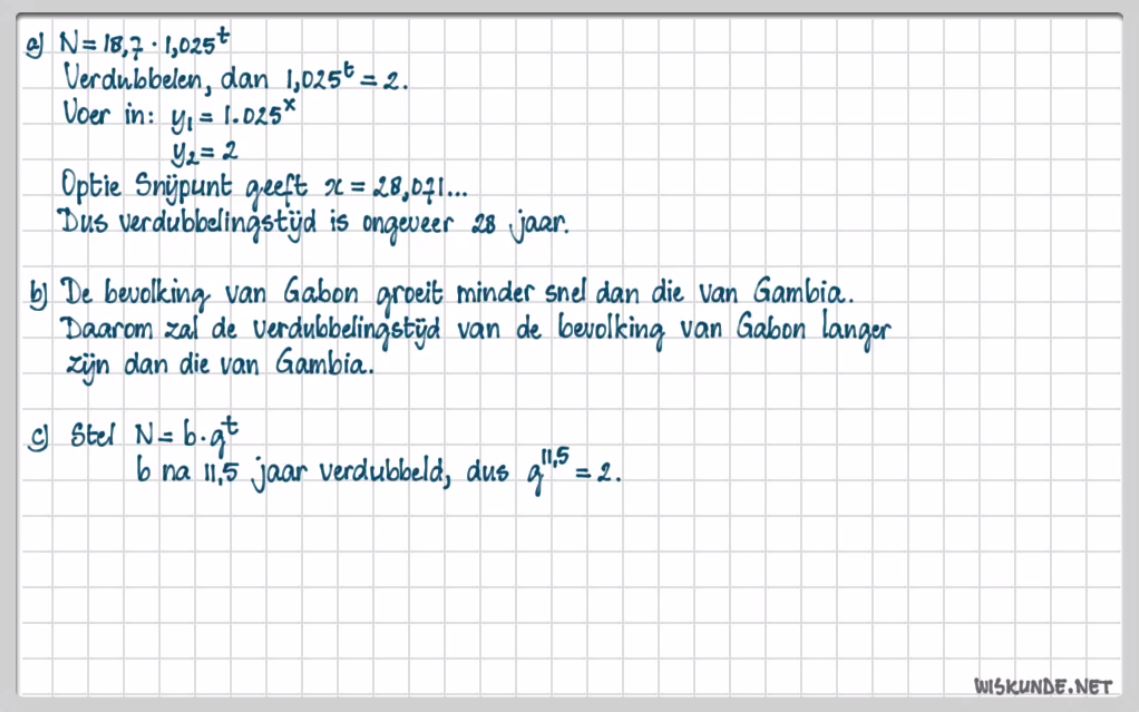 a) N = 18,7 · 1,025ᵗ
Verdubbelen, dan 1,025ᵗ = 2.
Voer in: y₁ = 1.025ˣ
y₂ = 2
Optie Snijpunt geeft x = 28,071...
Dus verdubbelingstijd is ongeveer 28 jaar.
b) De bevolking van Gabon groeit minder snel dan die van Gambia.
Daarom zal de verdubbelingstijd van de bevolking van Gabon langer
zijn dan die van Gambia.
c) Stel N = b · gᵗ
b na 11,5 jaar verdubbeld, dus g¹¹·⁵ = 2.
WISKUNDE.NET